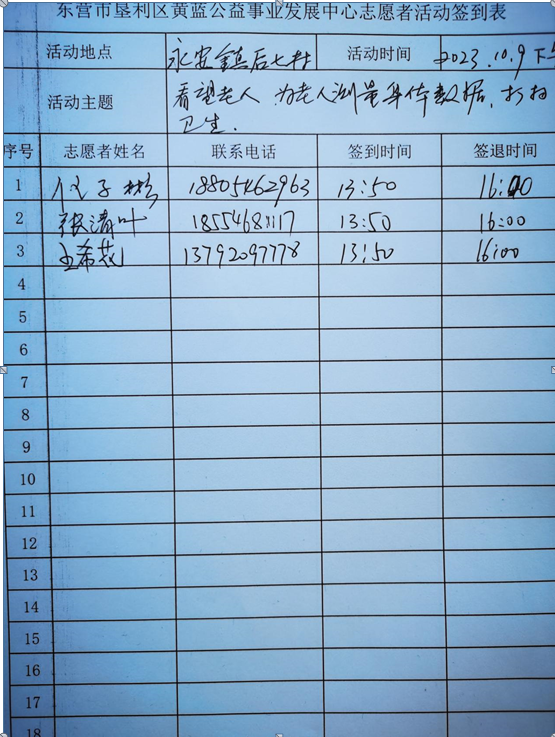 东营市垦利区黄蓝公益事业发展中心志愿者活动签到表
活动地点 永安镇后七村 活动时间 2023.10.9 下午
活动主题 看望老人 为老人测量身体数据,打扫
卫生.
序号 志愿者姓名 联系电话 签到时间 签退时间
1 子彬 18805462963 13:50 16:00
2 张清叶 13:50 16:00
3 王希 13792097778 13:50 16:00
4
5
6
7
8
9
10
11
12
13
14
15
16
17
18